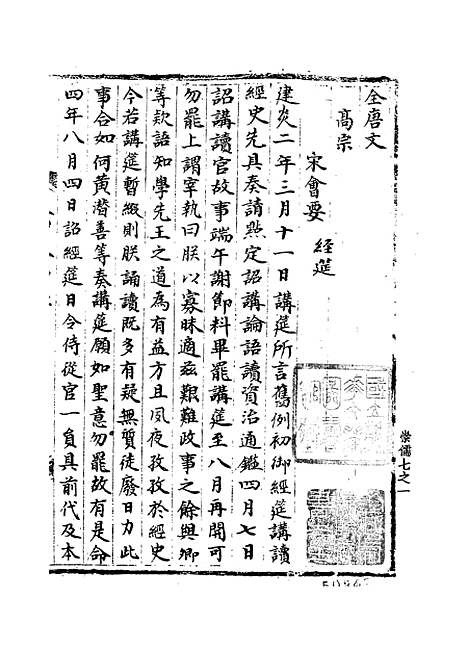 全唐文
宋會要 經筵
高宗
建炎二年三月十一日講筵所言舊例初御經筵講讀
經史先具奏請㸃定詔講論語讀資治通鑑四月七日
詔講讀官故事端午謝節料畢罷講筵至八月再開可
勿罷上謂宰執曰朕以寡昧適茲艱難政事之餘與卿
等欵語知學先王之道為有益方且夙夜孜孜於經史
今若講筵暫綴則朕誦讀既多有疑無質徒廢日力此
事合如何黃潛善等奏講筵願如聖意勿罷故有是命
四年八月四日詔經筵日令侍從官一員具前代及本
崇儒七之一